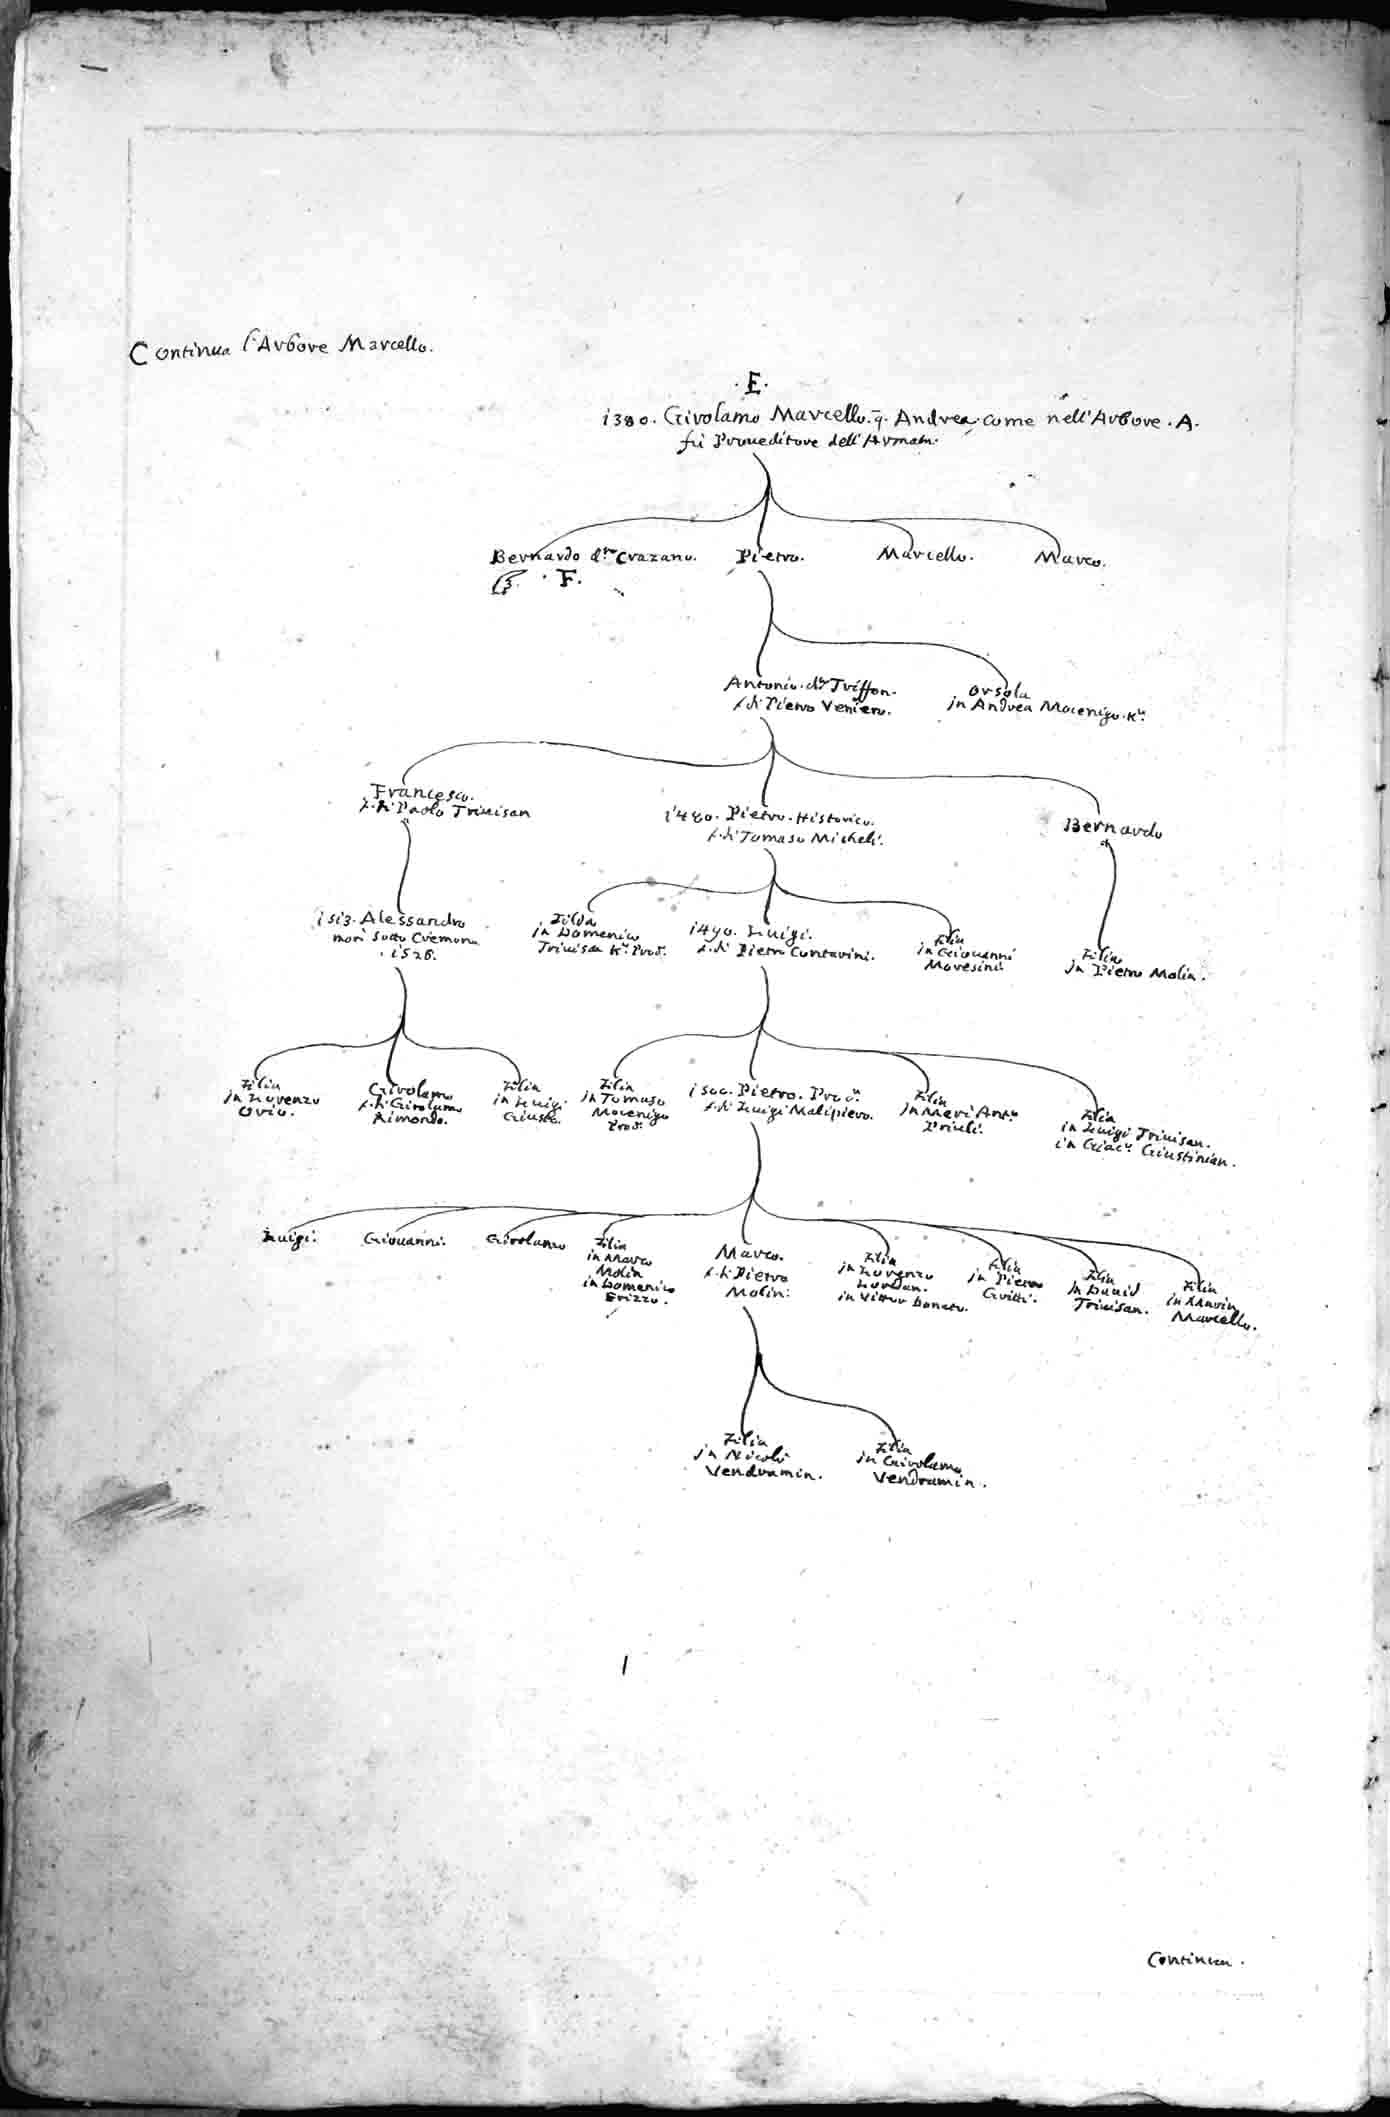 Continua l'Arbore Marcello.
. E .
1380. Girolamo Marcello. q. Andrea come nell'Arbore . A .
fù Proueditore dell'Armata.
Bernardo dto Crazano.
Pietro.
Marcello.
Marco.
. F .
Antonio. dto Triffon.
f. di Pietro Veniero.
Orsola
in Andrea Mocenigo. Kr.
Francesco.
f. di Paolo Triuisan
1480. Pietro. Historico.
f. di Tomaso Micheli.
Bernardo
1513. Alessandro
morì sotto Cremona
. 1526.
Filia
in Domenico
Triuisan Kr. Procr.
1490. Luigi.
f. di Pietro Contarini.
Filia
in Giouanni
Moresini.
Filia
in Pietro Molin.
Filia
in Lorenzo
Orio.
Girolamo
f. di Girolamo
Aimondo.
Filia
in Luigi
Giusto.
Filia
in Tomaso
Mocenigo
Procr.
1500. Pietro. Procr.
f. di Luigi Malipiero.
Filia
in Marc' Anto.
Priuli.
Filia
in Luigi Triuisan.
in Giaco. Giustinian.
Luigi.
Giouanni.
Girolamo
Filia
in Marco
Molin
in Domenico
Erizzo.
Marco.
f. di Pietro
Molin.
Filia
in Lorenzo
Loredan.
in Vittor Donato.
Filia
in Pietro
Gritti.
Filia
in Dauid
Triuisan.
Filia
in Marin
Marcello.
Filia
in Nicolò
Vendramin.
Filia
in Girolamo
Vendramin.
Continua.